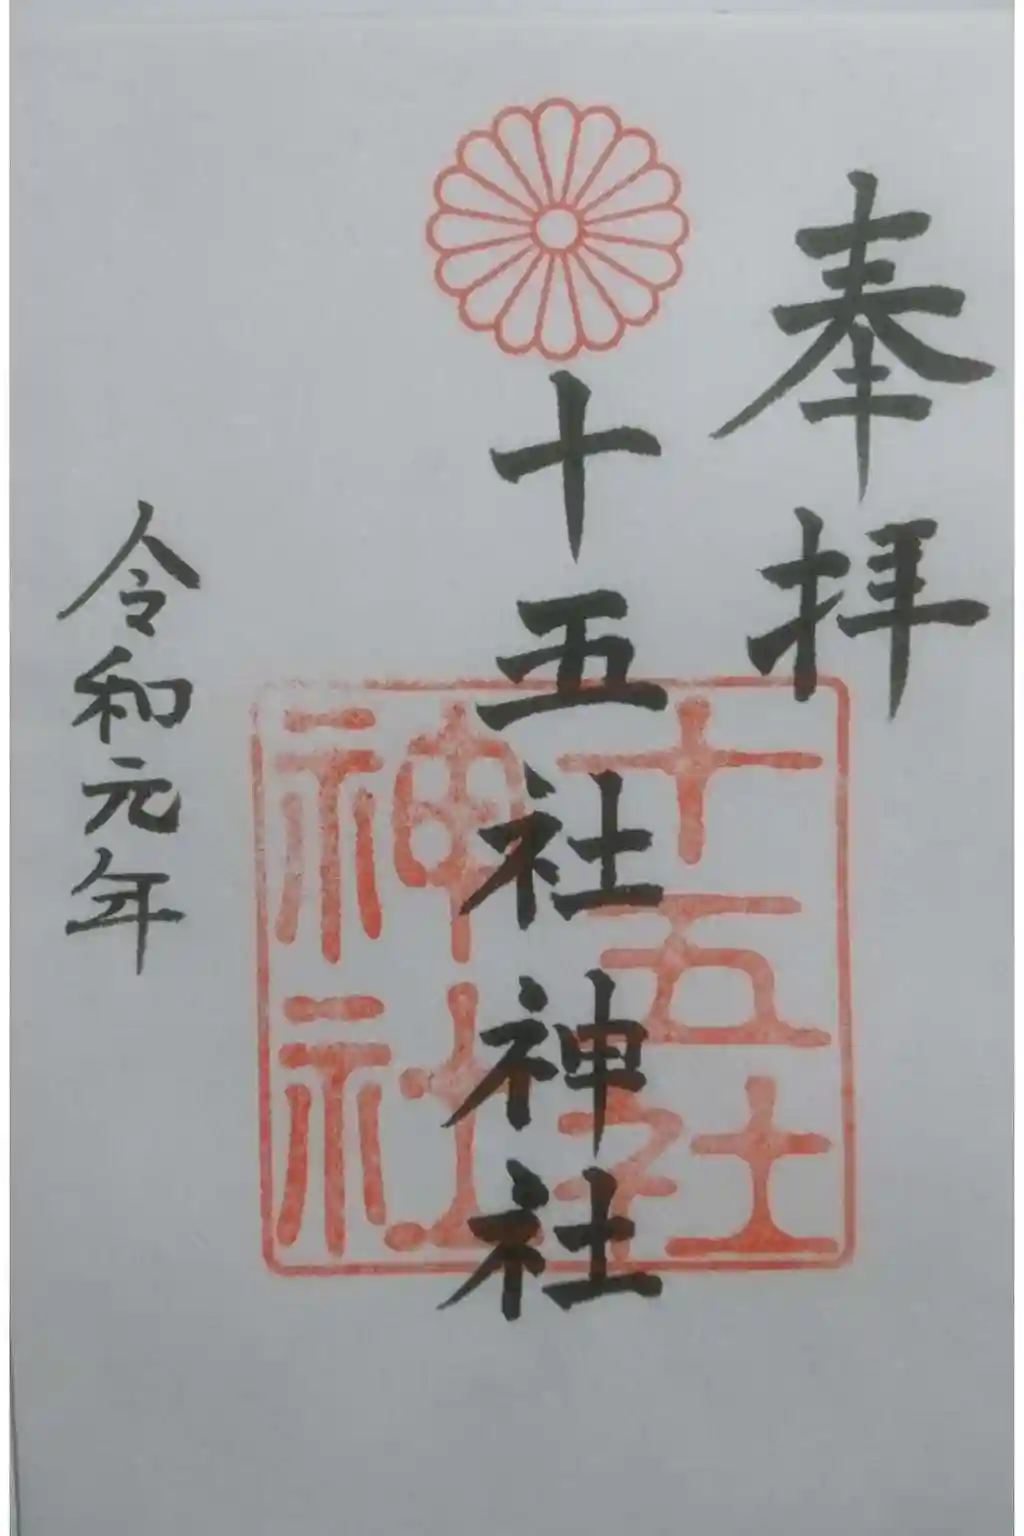 奉拝
十五社神社
十五社
神社
令和元年